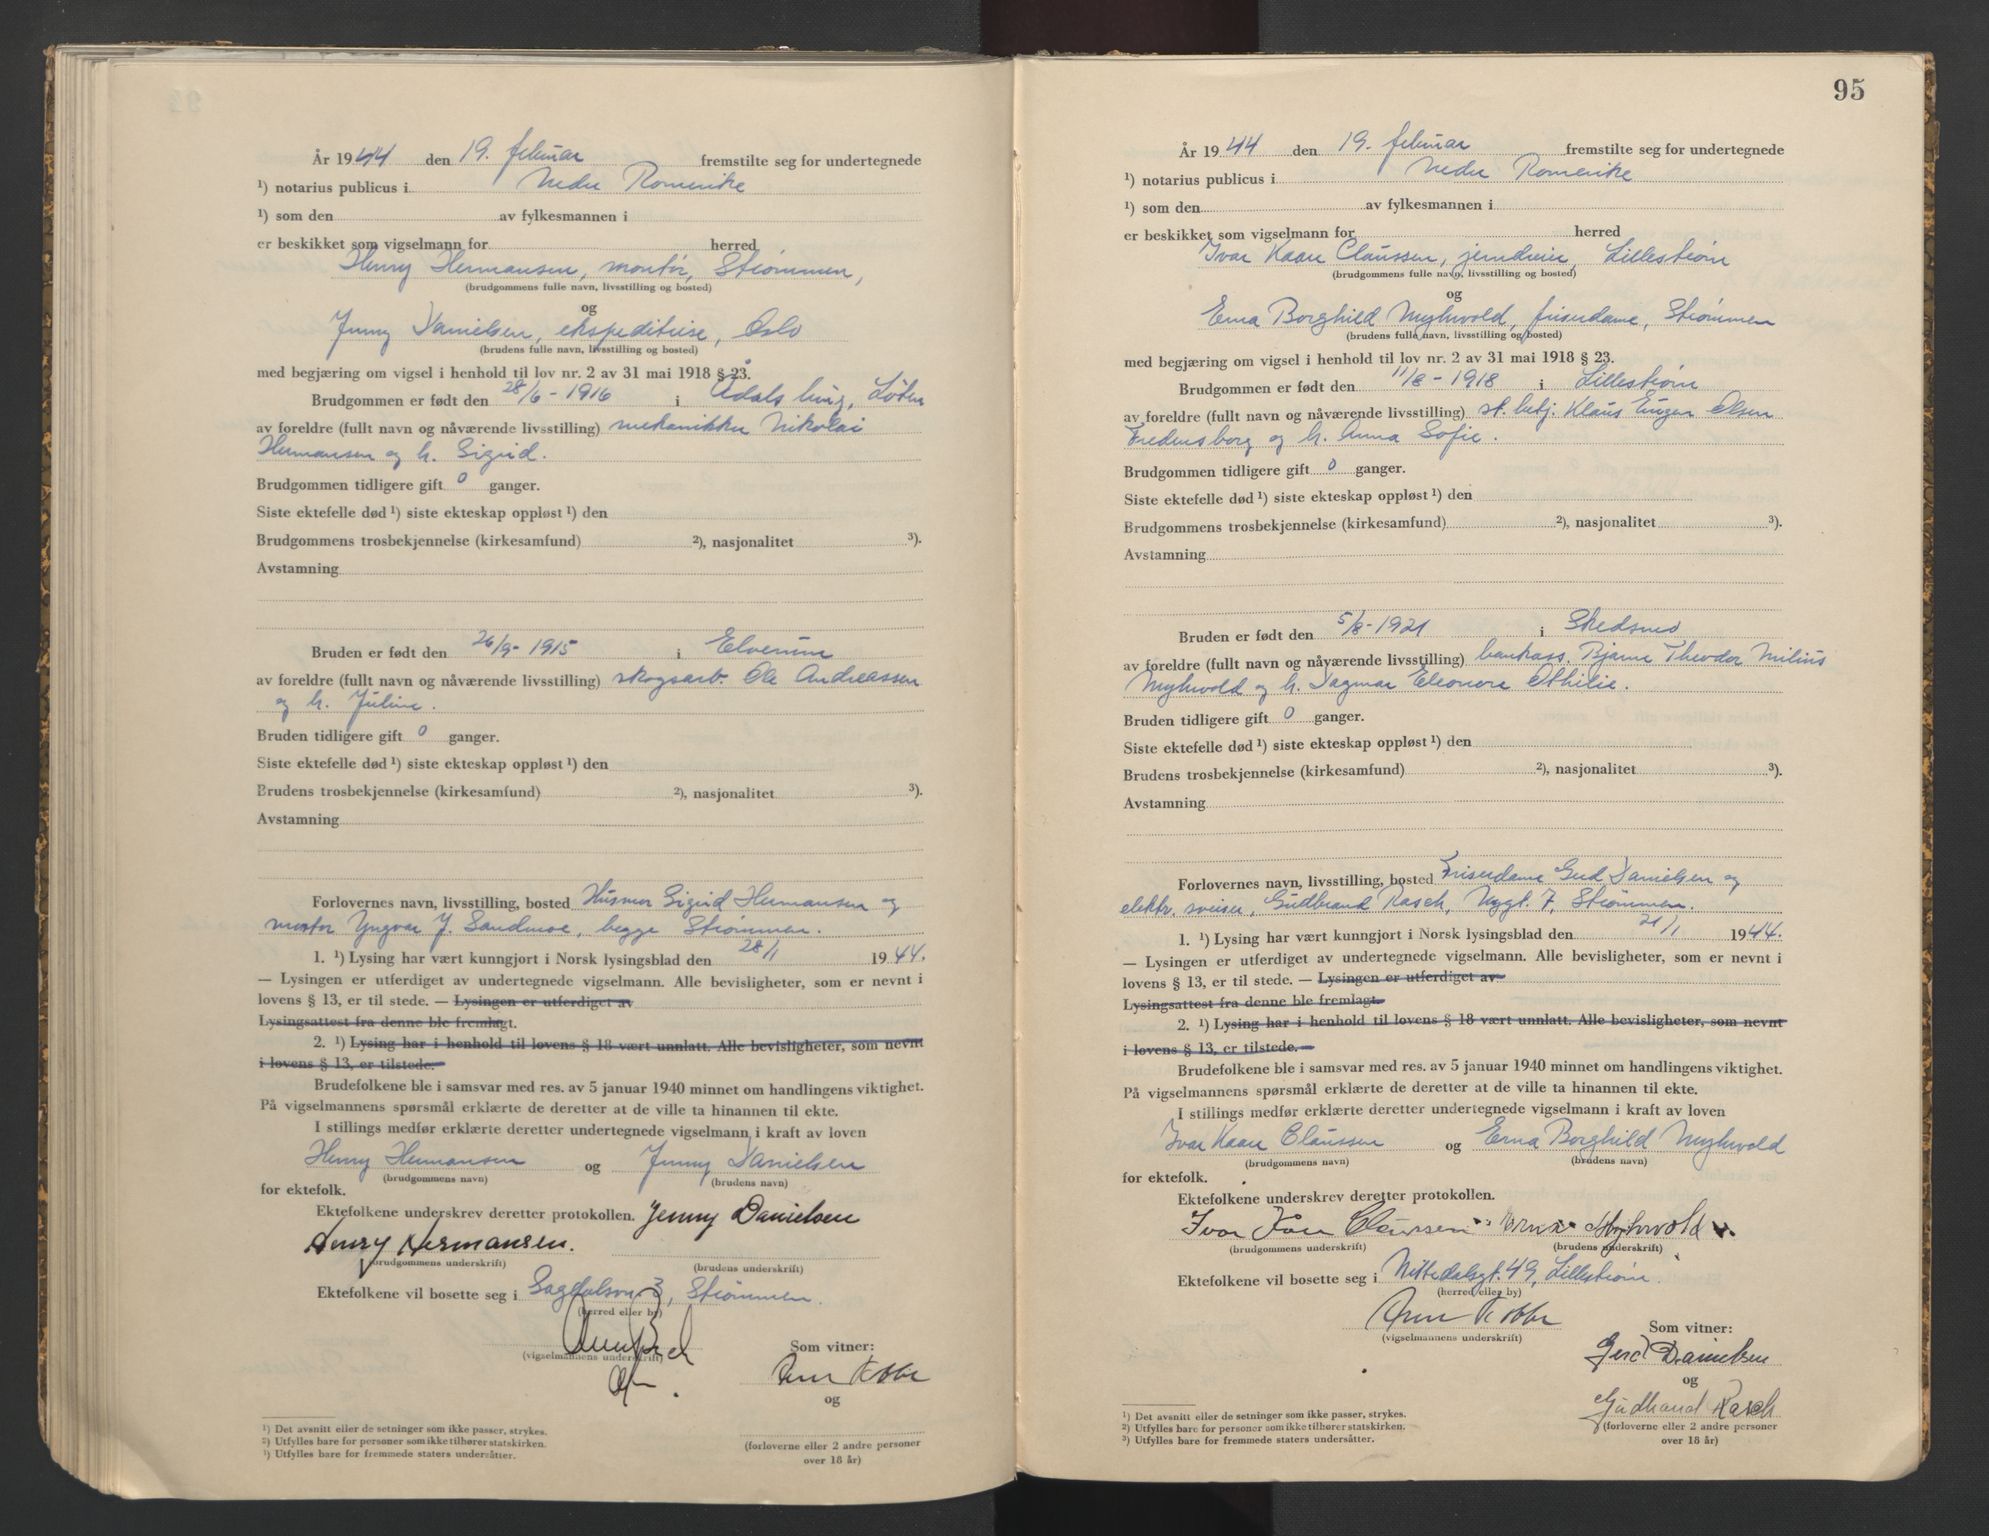 År 1944 den 19. februar fremstilte seg for undertegnede
¹) notarius publicus i Nedre Romerike
¹) som den av fylkesmannen i
er beskikket som vigselmann for herred
Henry Hermansen, montør, Strømmen,
(brudgommens fulle navn, livsstilling og bosted)
og
Jenny Danielsen, ekspeditrise, Oslo
(brudens fulle navn, livsstilling og bosted)
med begjæring om vigsel i henhold til lov nr. 2 av 31 mai 1918 § 23.
Brudgommen er født den 28/6 - 1916 i Ådals brug, Løten
av foreldre (fullt navn og nåværende livsstilling) mekanikker Nikolai
Hermansen og h. Sigrid.
Brudgommen tidligere gift 0 ganger.
Siste ektefelle død ¹) siste ekteskap oppløst ¹) den
Brudgommens trosbekjennelse (kirkesamfund) ²), nasjonalitet ³).
Avstamning
Bruden er født den 26/9 - 1915 i Elverum
av foreldre (fullt navn og nåværende livsstilling) skogsarb. Ole Andreassen
og h. Juline.
Bruden tidligere gift 0 ganger.
Siste ektefelle død ¹) siste ekteskap oppløst ¹) den
Brudens trosbekjennelse (kirkesamfund) ²), nasjonalitet ³).
Avstamning
Forlovernes navn, livsstilling, bosted Husmor Sigrid Hermansen og
montør Yngvar J. Sandmoe, begge Strømmen.
1. ¹) Lysing har vært kunngjort i Norsk lysingsblad den 28/1 1944.
— Lysingen er utferdiget av undertegnede vigselmann. Alle bevisligheter, som er nevnt i
lovens § 13, er til stede. — Lysingen er utferdiget av
Lysingsattest fra denne ble fremlagt.
2. ¹) Lysing har i henhold til lovens § 18 vært unnlatt. Alle bevisligheter, som nevnt
i lovens § 13, er tilstede.
Brudefolkene ble i samsvar med res. av 5 januar 1940 minnet om handlingens viktighet.
På vigselmannens spørsmål erklærte de deretter at de ville ta hinannen til ekte.
I stillings medfør erklærte deretter undertegnede vigselmann i kraft av loven
Henry Hermansen og Jenny Danielsen
(brudgommens navn) (brudens navn)
for ektefolk.
Ektefolkene underskrev deretter protokollen. Jenny Danielsen
Henry Hermansen.
(brudgommens underskrift) (brudens underskrift)
Ektefolkene vil bosette seg i Sagdalsvn 3, Strømmen.
(herred eller by)
(vigselmannens underskrift)
Som vitner:
og
¹) Det avsnitt eller de setninger som ikke passer, strykes.
²) Utfylles bare for personer som ikke tilhører statskirken.
³) Utfylles bare for fremmede staters undersåtter.
(forloverne eller 2 andre personer
over 18 år)
95
År 1944 den 19. februar fremstilte seg for undertegnede
¹) notarius publicus i Nedre Romerike
¹) som den av fylkesmannen i
er beskikket som vigselmann for herred
Ivar Kaare Claussen, jerndreier, Lillestrøm
(brudgommens fulle navn, livsstilling og bosted)
og
Erna Borghild Myhrvold, friserdame, Strømmen
(brudens fulle navn, livsstilling og bosted)
med begjæring om vigsel i henhold til lov nr. 2 av 31 mai 1918 § 23.
Brudgommen er født den 11/8 - 1918 i Lillestrøm
av foreldre (fullt navn og nåværende livsstilling) st. betj. Klaus Eugen Olsen
Fredensborg og h. Anna Sofie.
Brudgommen tidligere gift 0 ganger.
Siste ektefelle død ¹) siste ekteskap oppløst ¹) den
Brudgommens trosbekjennelse (kirkesamfund) ²), nasjonalitet ³).
Avstamning
Bruden er født den 5/8 - 1921 i Skedsmo
av foreldre (fullt navn og nåværende livsstilling) bankass. Bjarne Theodor Milius
Myhrvold og h. Dagmar Eleonore Othilie.
Bruden tidligere gift 0 ganger.
Siste ektefelle død ¹) siste ekteskap oppløst ¹) den
Brudens trosbekjennelse (kirkesamfund) ²), nasjonalitet ³).
Avstamning
Forlovernes navn, livsstilling, bosted Friserdame Gerd Danielsen og
elektr. sveiser, Gudbrand Rasch, Nygt. 7, Strømmen.
1. ¹) Lysing har vært kunngjort i Norsk lysingsblad den 21/1 1944.
— Lysingen er utferdiget av undertegnede vigselmann. Alle bevisligheter, som er nevnt i
lovens § 13, er til stede. — Lysingen er utferdiget av
Lysingsattest fra denne ble fremlagt.
2. ¹) Lysing har i henhold til lovens § 18 vært unnlatt. Alle bevisligheter, som nevnt
i lovens § 13, er tilstede.
Brudefolkene ble i samsvar med res. av 5 januar 1940 minnet om handlingens viktighet.
På vigselmannens spørsmål erklærte de deretter at de ville ta hinannen til ekte.
I stillings medfør erklærte deretter undertegnede vigselmann i kraft av loven
Ivar Kaare Claussen og Erna Borghild Myhrvold
(brudgommens navn) (brudens navn)
for ektefolk.
Ektefolkene underskrev deretter protokollen.
Ivar Kåre Claussen Erna Myhrvold
(brudgommens underskrift) (brudens underskrift)
Ektefolkene vil bosette seg i Nittedalsgt. 49, Lillestrøm.
(herred eller by)
(vigselmannens underskrift)
Som vitner:
Gerd Danielsen
og
Gudbrand Rasch
¹) Det avsnitt eller de setninger som ikke passer, strykes.
²) Utfylles bare for personer som ikke tilhører statskirken.
³) Utfylles bare for fremmede staters undersåtter.
(forloverne eller 2 andre personer
over 18 år)